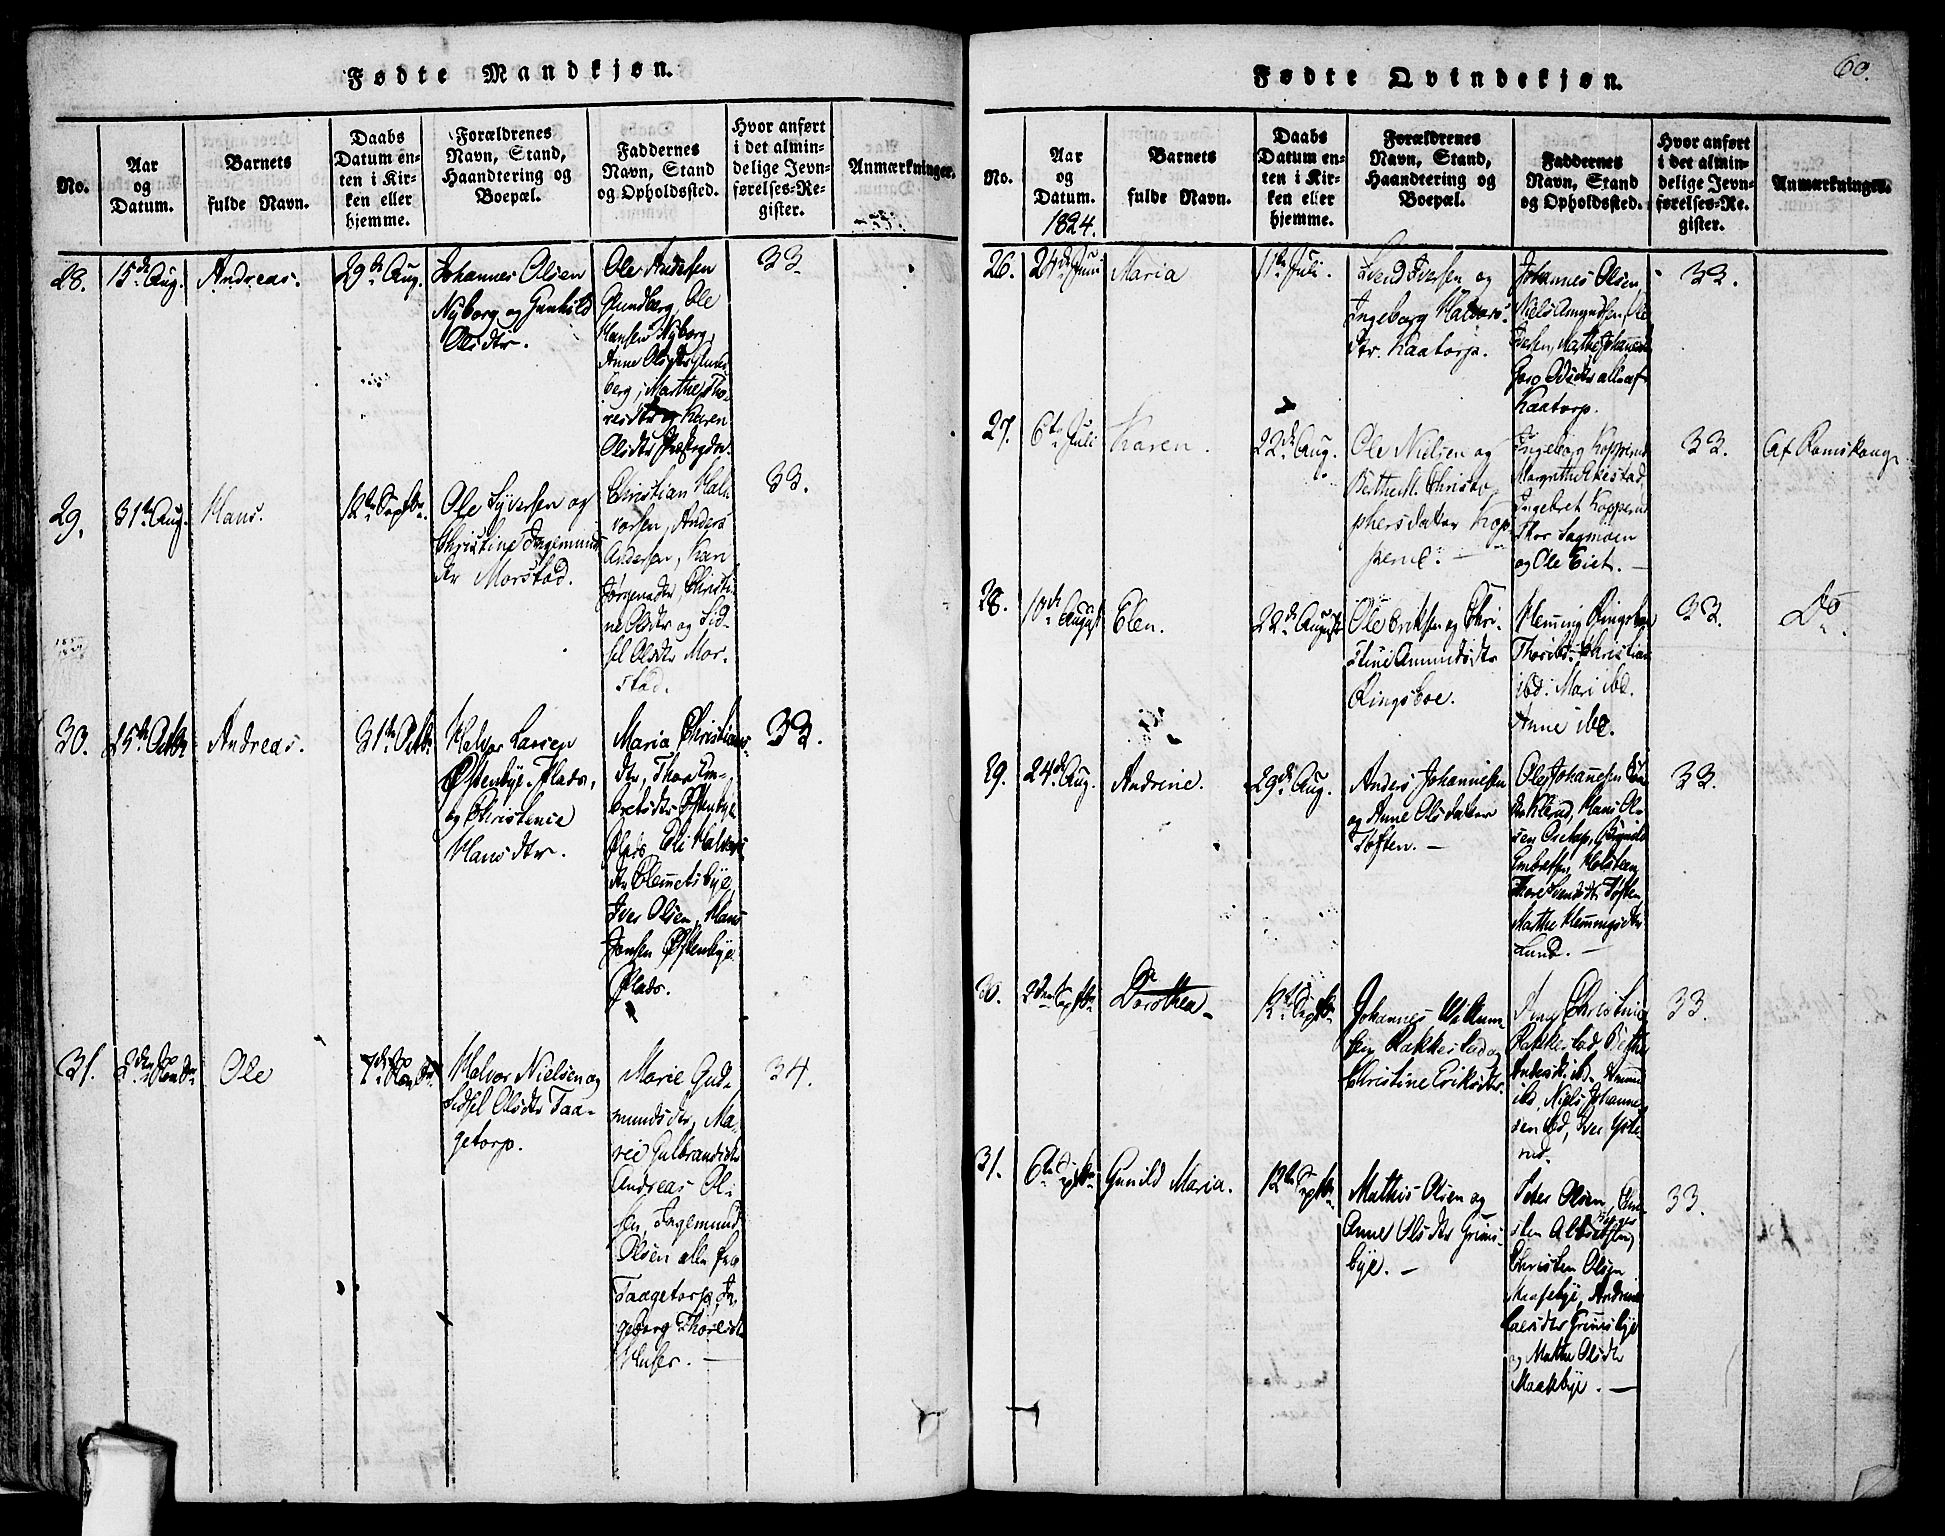 Fødte Mandkjøn.
No.
Aar
og
Datum.
Barnets
fulde Navn.
Daabs
Datum en-
ten i Kir-
ken eller
hjemme.
Forældrenes
Navn, Stand,
Haandtering og
Boepæl.
Faddernes
Navn, Stand
og Opholdssted.
Hvor anført
i det almin-
delige Jevn-
førelses-Re-
gister.
Anmærkninger.
28.
15de Aug.
Andreas.
29de Aug.
Johannes Olsen
Nyborg og Gunhild
Olsdtr.
Ole Andersen
Grundberg, Ole
Hansen Nyborg,
Anne Olsdtr
berg, Marthe Tho-
resdtr og Karen
Olsdtr
33
29.
31te Aug.
Hans.
12te Septbr.
Ole Syversen og
Christine Ingemunds
dtr Morstad.
Christian Hal-
vorsen, Anders
Andersen, Karn
Jørgensdtr, Christi-
ne Olsdtr og Sid-
sel Olsdtr Mor-
stad.
33.
30.
15de Octbr
Andreas.
31te Octbr
Halvor Larsen
Østenbye Plads,
og Christence
Hansdtr.
Maria Christians-
dtr, Thore Em-
bretsdtr Østenbye
Plads, Eli Halvors-
dtr Clemetsbye,
Iver Olsen, Hans
Jensen Østenbye
Plads.
33.
31.
Ole
Halvor Nielsen og
Sidsel Olsdtr Taa-
getorp.
Marie Gud-
mundsdtr, Ma-
rie Gulbrandsdtr
Andreas Ol-
sen, Ingemund
Olsen alle fra
Taagetorp, In-
geborg Thoresdtr
Huser. —
34.
Fødte Qvindekjøn.
60.
No.
Aar
og
Datum.
1824.
Barnets
fulde Navn.
Daabs
Datum en-
ten i Kir-
ken eller
hjemme.
Forældrenes
Navn, Stand,
Haandtering og
Boepæl.
Faddernes
Navn, Stand
og Opholdssted.
Hvor anført
i det almin-
delige Jevn-
førelses-Re-
gister.
Anmærkninger.
26.
24de Juni
Maria
11te Juli.
Svend Iversen og
Ingeborg Halvors-
dtr. Kaatorp.
Johannes Olsen,
Niels Amundsen, Ole
Iversen, Marthe Johannesdtr
Goro Olsdtr alle af
Kaatorp.
33.
27.
6te Juli
Karen.
22de Aug.
Ole Nielsen og
Berthe M. Christo-
phersdatter Kop-
perud. —
Ingeborg Kopperud
Margrethe
Ingebret Kopperud
Thor Sagmoen
og Ole Eiet. —
33.
Af Romskoug
28.
10de August
Elen.
22de August
Ole Eriksen og Chri-
stine Amundsdtr
Ringsboe.
Hemming Ringsboe
ibd. Christian
ibd. Mari ibd.
Anne ibd.
33.
Do
29.
24de Aug.
Andrine.
29de Aug.
Anders Johannesen
og Anne Olsdatter
Toften. —
Ole Johannesen
Hans Ol-
sen
Embretsen, Holsteen,
Thore Svendsdtr Toften,
Marthe Hemmingsdtr
Lund. —
33.
30.
Dorothea
12te Septbr
Johannes Willum-
sen Rakkestad og
Christine Eriksdtr.
Christine
Rakkestad, Berthe
Andersdtr ibd.
ibd, Niels Johanne-
sen ibd, Iver
rud.
33.
31.
6te Septbr
Gunild Maria.
12te Septbr
Mathis Olsen og
Anne Olsdtr Grims-
bye. —
Peter Olsen,
Christen Olsen
Maakebye, Andrine
Larsdtr Grimsbye
og Marthe Olsdtr
Maakbye. —
33.